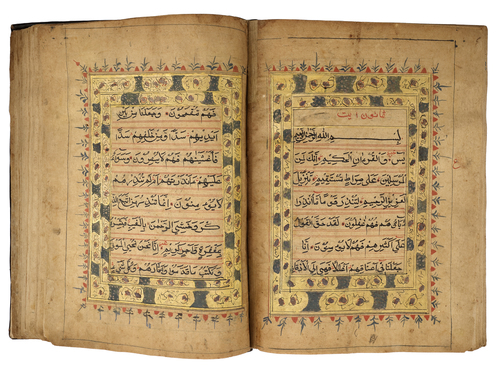 ثمانون ايت
بسم الله الرحمن الرحيم
يس والقرآن الحكيم انك لمن
المرسلين على صراط مستقيم تنزيل
العزيز الرحيم لتنذر قوما ما انذر
آباؤهم فهم غفلون لقد حق القول
على اكثرهم فهم لا يؤمنون انا
جعلنا في اعناقهم اغللا فهي الى الاذقان
فهم مقمحون وجعلنا من بين
ايديهم سدا ومن خلفهم سدا
فاغشينهم فهم لا يبصرون وسواء
عليهم ءانذرتهم ام لم تنذرهم
لا يؤمنون انما تنذر من اتبع الذ
كر وخشي الرحمن بالغيب فبشره
بمغفرة واجر كريم انا نحن نحي الموتى
ونكتب ما قدموا واثارهم وكل شيء